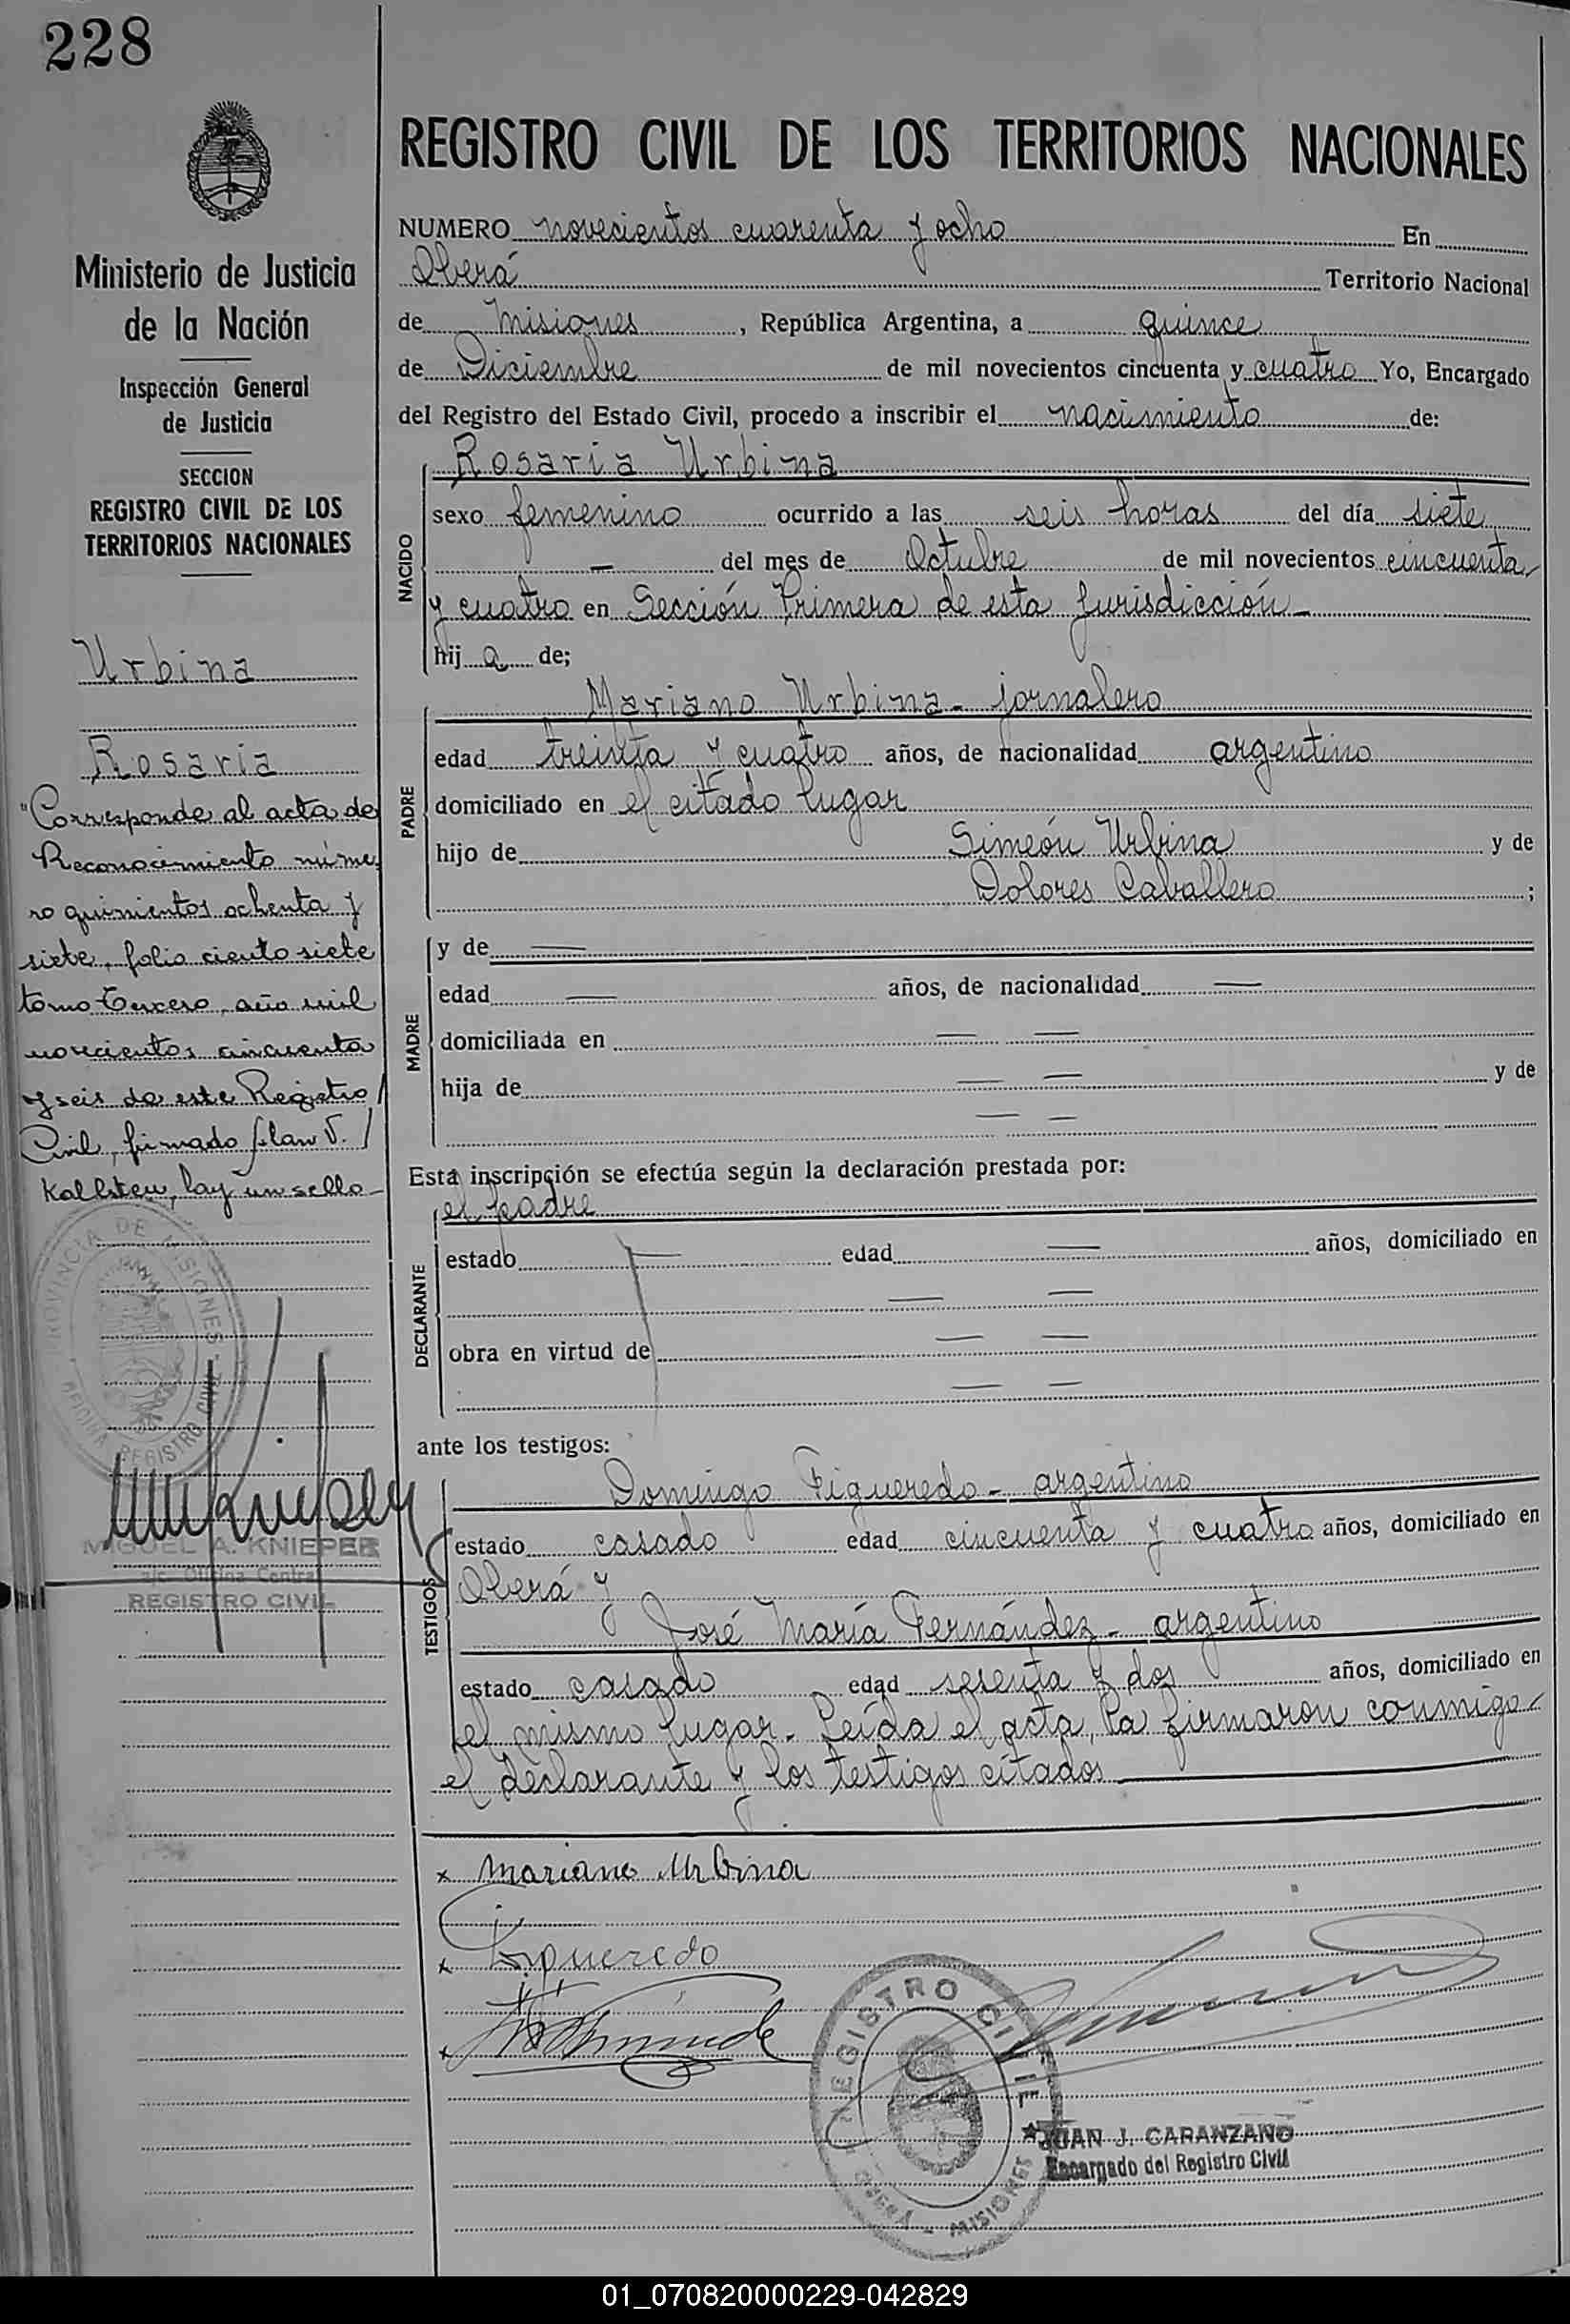 228
REGISTRO CIVIL DE LOS TERRITORIOS NACIONALES
NUMERO novecientos cuarenta y ocho En
Oberá Territorio Nacional
de Misiones, República Argentina, a quince
de Diciembre de mil novecientos cincuenta y cuatro Yo, Encargado
del Registro del Estado Civil, procedo a inscribir el nacimiento de:
Ministerio de Justicia
de la Nación
Inspección General
de Justicia
SECCION
REGISTRO CIVIL DE LOS
TERRITORIOS NACIONALES
Urbina
Rosaria
"Corresponde al acta de
Reconocimiento núme
ro quinientos ochenta y
siete, folio ciento siete
tomo tercero, año mil
novecientos cincuenta
y seis de este Registro
Civil, firmado V.
Kallsten, hay un sello
PROVINCIA DE MISIONES
OFICINA REGISTRO CIVIL
MIGUEL A. KNIEPER
a/c. Oficina Central
REGISTRO CIVIL
NACIDO
Rosaria Urbina
sexo femenino ocurrido a las seis horas del día siete
— del mes de Octubre de mil novecientos cincuenta
y cuatro en Sección Primera de esta Jurisdicción -
hij a de;
PADRE
Mariano Urbina - jornalero
edad treinta y cuatro años, de nacionalidad argentino
domiciliado en el citado lugar
hijo de Simeón Urbina y de
Dolores Caballero ;
MADRE
y de —
edad — años, de nacionalidad —
domiciliada en — —
hija de — — y de
— —
Esta inscripción se efectúa según la declaración prestada por:
DECLARANTE
el padre
estado — edad — años, domiciliado en
— —
obra en virtud de — —
— —
ante los testigos:
TESTIGOS
Domingo Figueredo - argentino
estado casado edad cincuenta y cuatro años, domiciliado en
Oberá y
José María Fernández - argentino
estado casado edad sesenta y dos años, domiciliado en
el mismo lugar. Leída el acta, la firmaron conmigo
el declarante y los testigos citados
x Mariano Urbina
x Figueredo
x
REGISTRO CIVIL
OBERÁ - MISIONES
JUAN J. CARANZANO
Encargado del Registro Civil
01_070820000229-042829